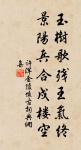 玉樹歌殘王氣終
景陽兵合戍樓空
許渾金陵懷古詞典網
集